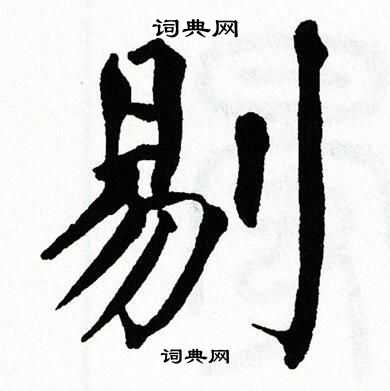 词典网
剔
词典网